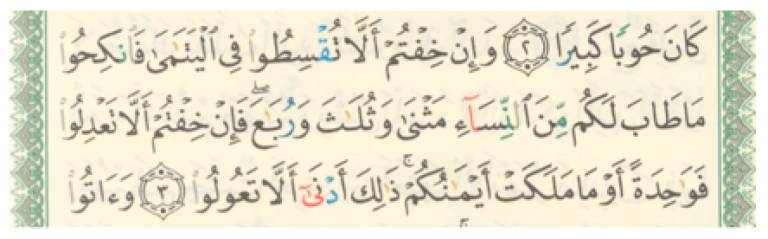 كَانَ حُوبًا كَبِيرًا ٢ وَإِنْ خِفْتُمْ أَلَّا تُقْسِطُوا۟ فِى ٱلْيَتَـٰمَىٰ فَٱنكِحُوا۟
مَا طَابَ لَكُم مِّنَ ٱلنِّسَآءِ مَثْنَىٰ وَثُلَـٰثَ وَرُبَـٰعَ ۖ فَإِنْ خِفْتُمْ أَلَّا تَعْدِلُوا۟
فَوَٰحِدَةً أَوْ مَا مَلَكَتْ أَيْمَـٰنُكُمْ ۚ ذَٰلِكَ أَدْنَىٰٓ أَلَّا تَعُولُوا۟ ٣ وَءَاتُوا۟